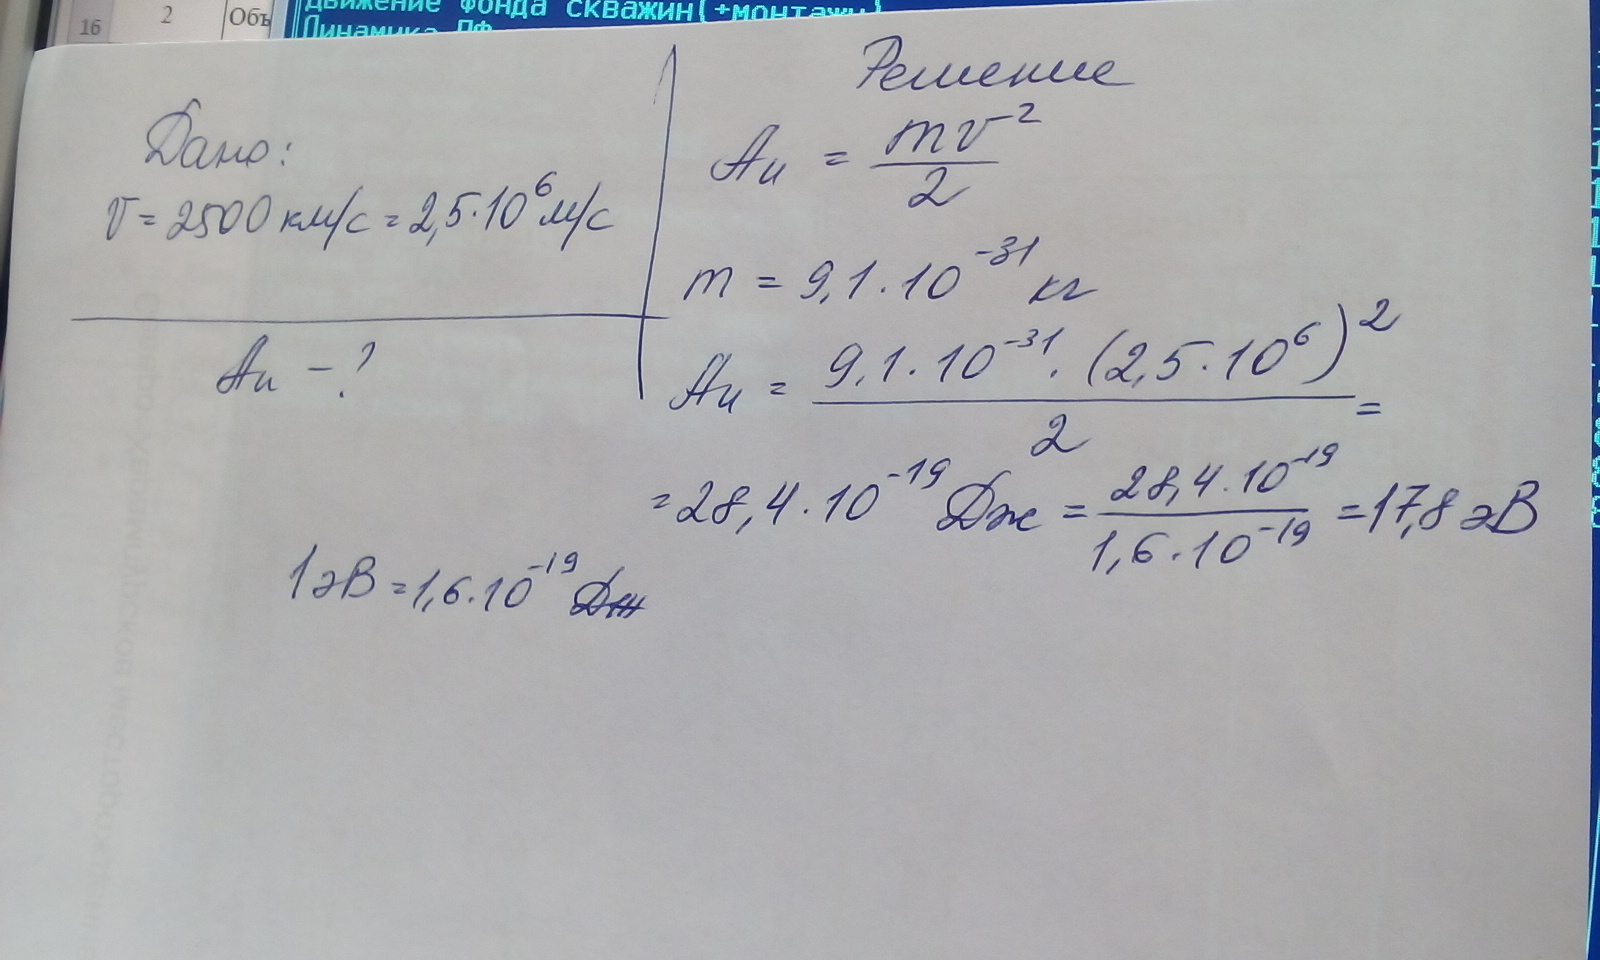 16
2
Объ
движение фонда скважин(+монтажи)
Динамика ПФ
Дано:
v = 2500 км/с = 2,5·10⁶ м/с
Aи – ?
Решение
Aи = mv²/2
m = 9,1·10⁻³¹ кг
Aи = 9,1·10⁻³¹·(2,5·10⁶)²/2 =
= 28,4·10⁻¹⁹ Дж = 28,4·10⁻¹⁹/1,6·10⁻¹⁹ = 17,8 эВ
1 эВ = 1,6·10⁻¹⁹ Дж